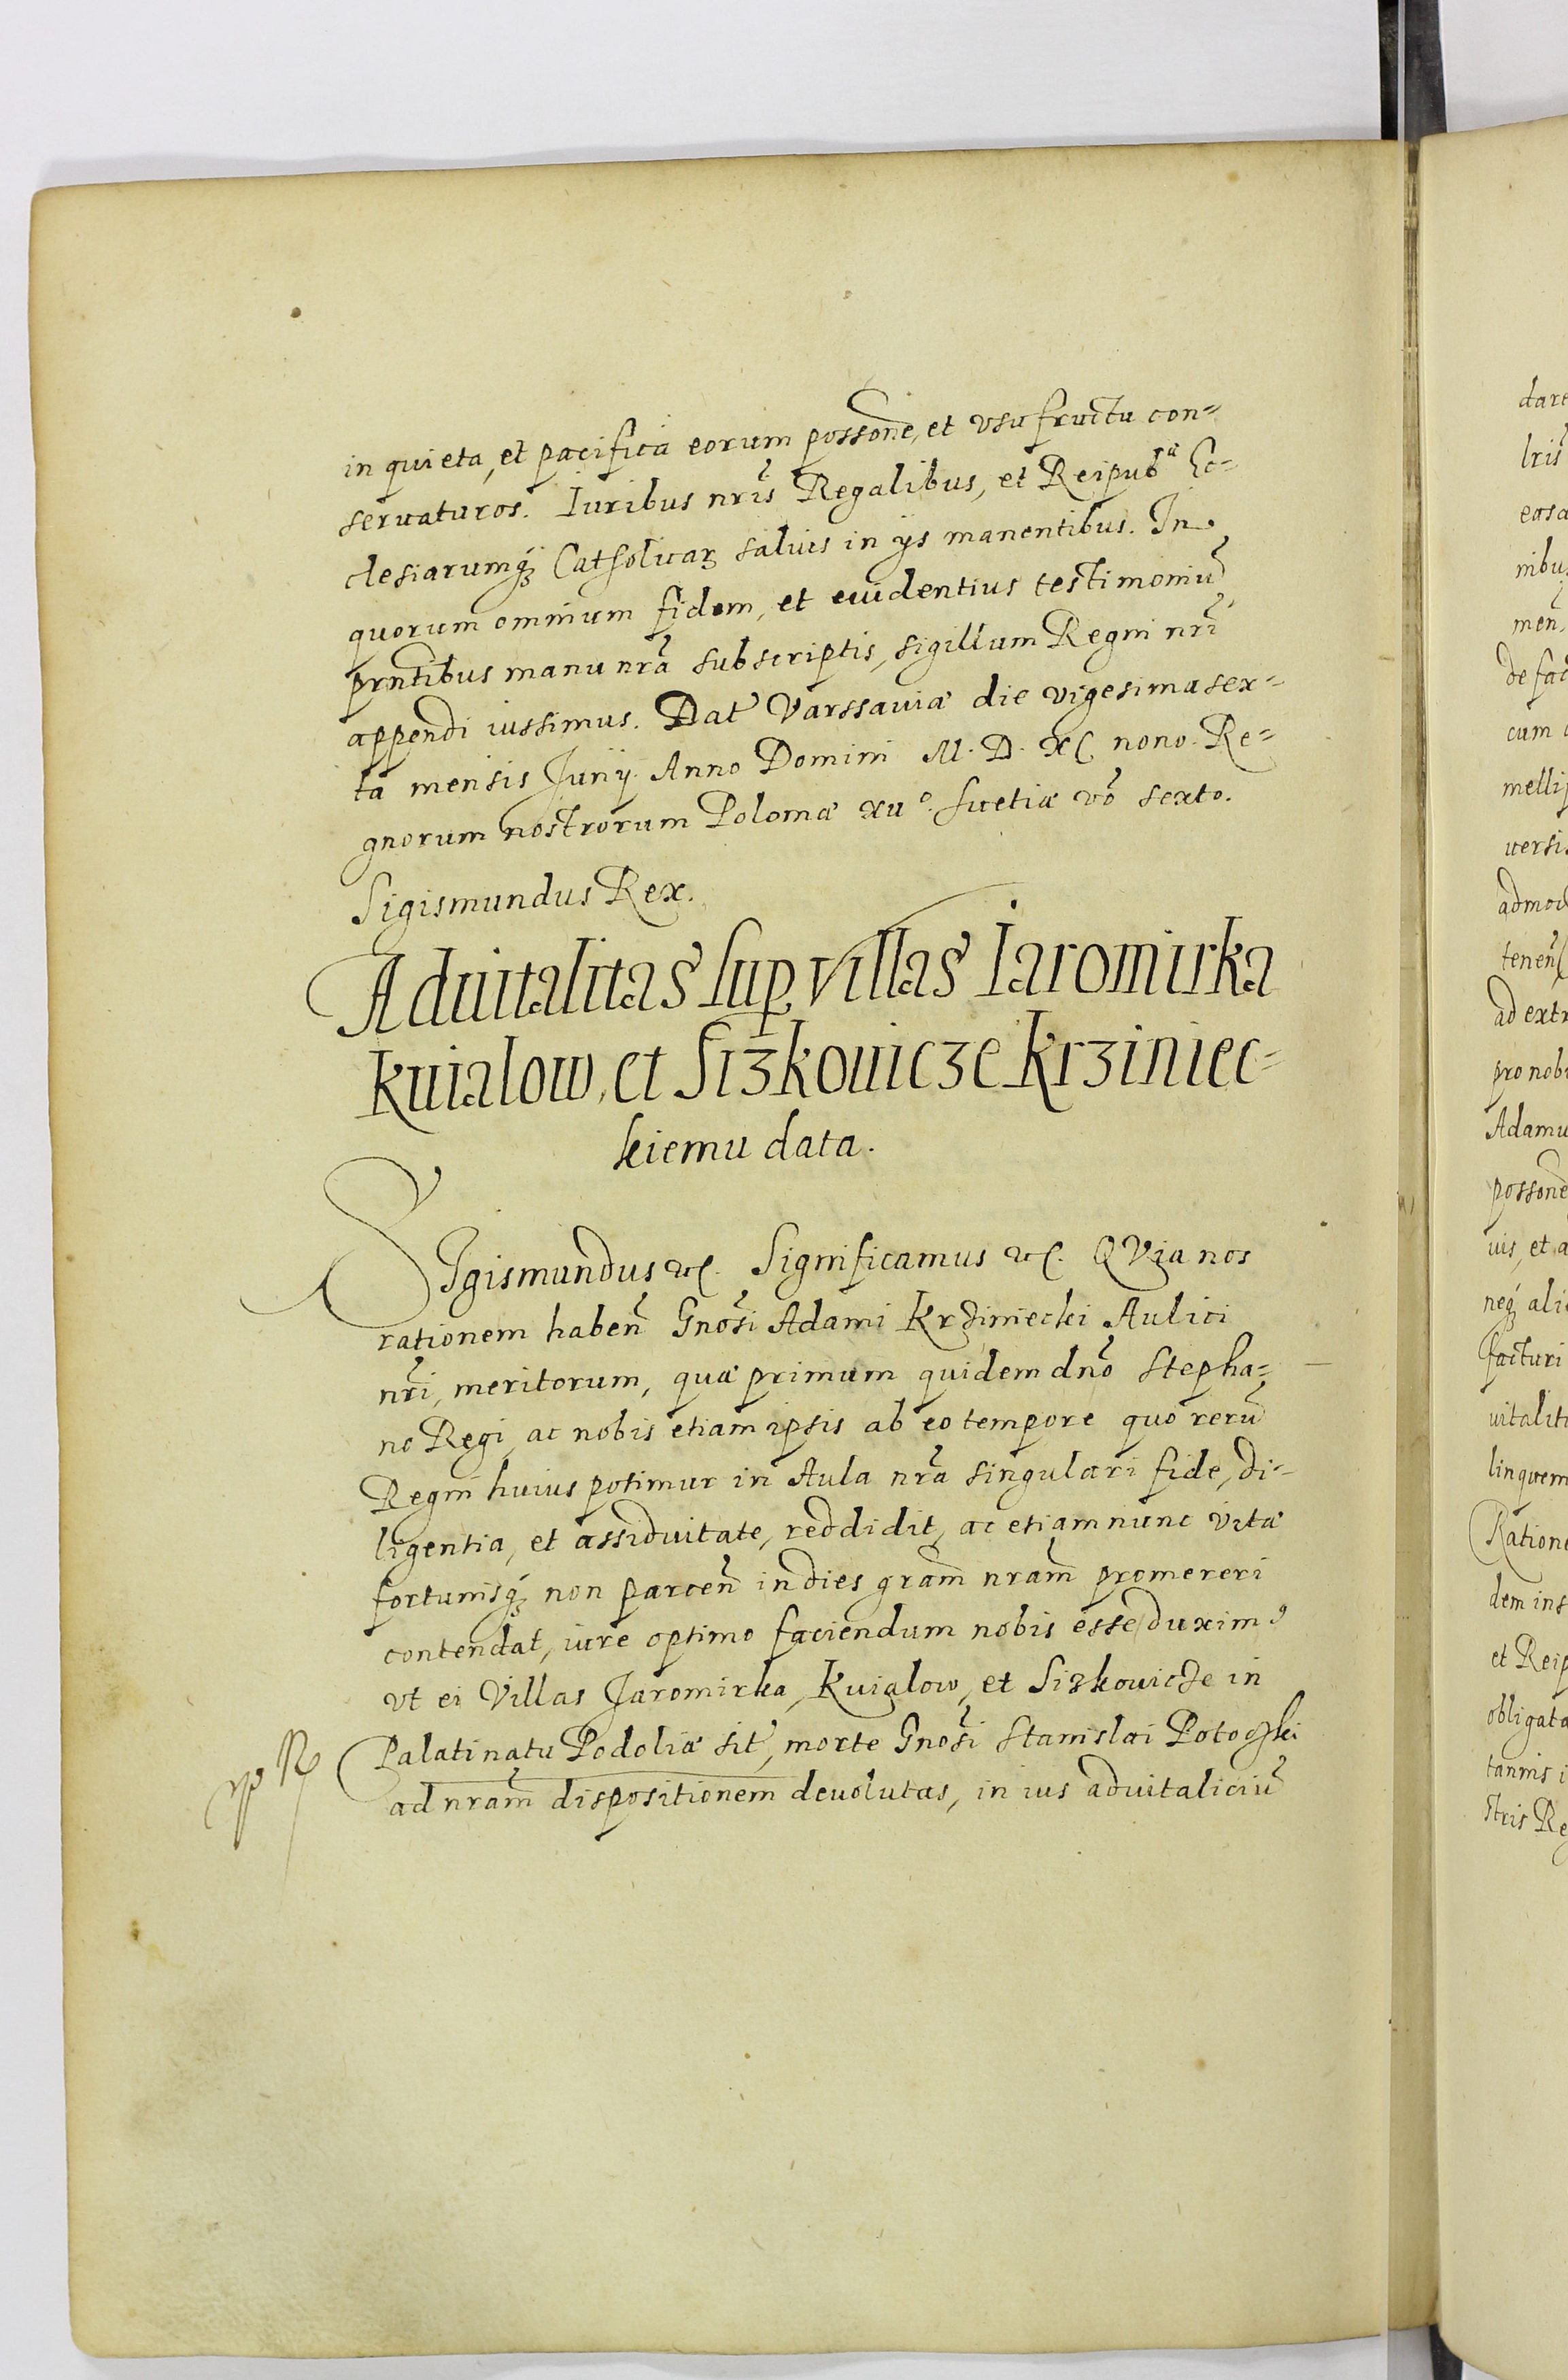 in quieta, et pacifica eorum possone, et vsufructu con=
seruaturos. Iuribus nris Regalibus, et Reipubcæ Ec=
clesiarumqꝫ Catholicaꝝ saluis in ijs manentibus. In
quorum omnium fidem, et euidentius testimoniū
prntibus manu nra subscriptis, sigillum Regni nri
appendi iussimus. Dat Varssauiæ die vigesima sex=
ta mensis Junij. Anno Domini M. D. XC nono. Re=
gnorum nostrorum Poloniæ xiiº. Suetiæ vō sexto.
Sigismundus Rex.
Aduitalitas sup villas Iaromirka
Kuialow, et Sizkouicze Krziniec=
kiemu data.
SIgismundus etc. Significamus etc. QVia nos
rationem haben Gnosi Adami Krziniecki Aulici
nri, meritorum, quæ primum quidem dno Stepha=
no Regi, ac nobis etiam ipsis ab eo tempore quo rerū
Regni huius potimur in Aula nra singulari fide, di=
ligentia, et assiduitate, reddidit, ac etiam nunc vitæ
fortunisqꝫ non parcen indies gram nram promereri
contendat, iure optimo faciendum nobis esse duximꝰ
vt ei Villas Jaromirka, Kuialow, et Sizkouicze in
Palatinatu Podoliæ sit, morte Gnosi Stanislai Potoczki
ad nram dispositionem deuolutas, in ius aduitaliciū
dare
lris
nibu
men,
de fac
cum
uersis
ad extr
pro nobi
Adamu
possone
uis, et a
neqꝫ ali
facturi
uitalit
linquem
Ratione
dem ins
et Reip
obligata
tannis i
stris Re